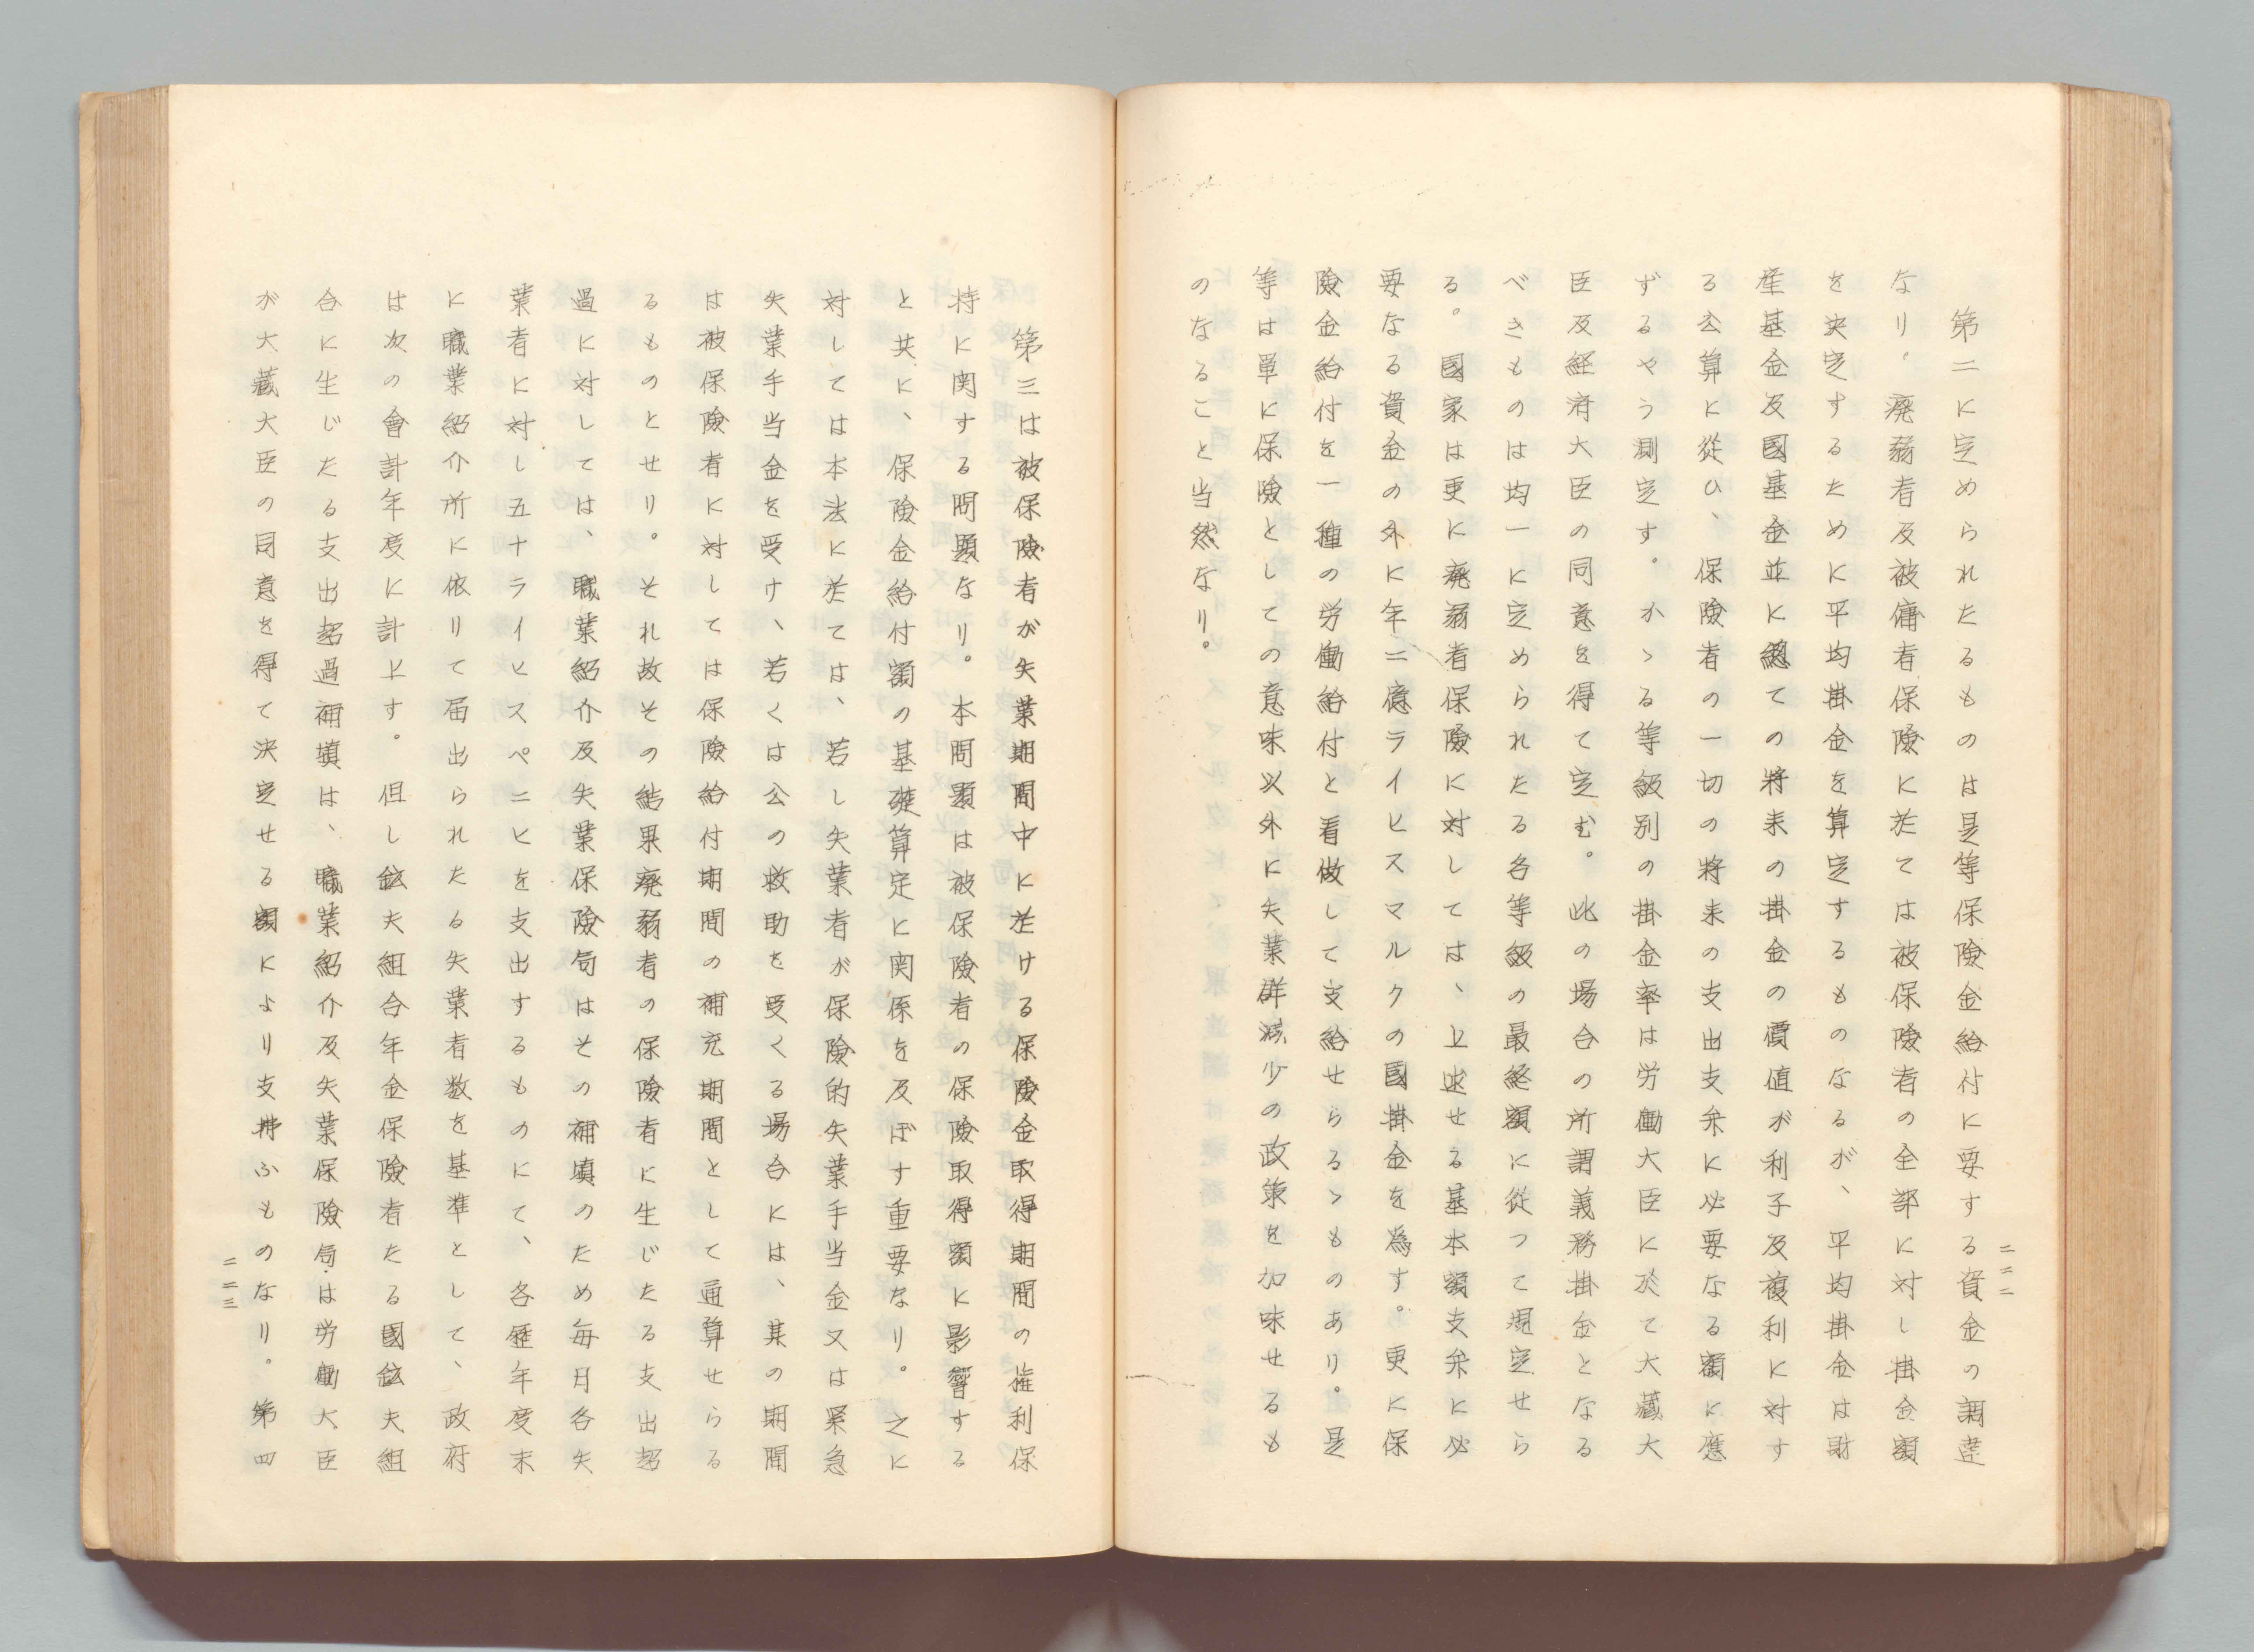 第二に定められたるものは是等保険金給付に要する資金の調達
なり。廃弱者及被傭者保険に於ては被保険者の全部に対し掛金額
を決定するために平均掛金を算定するものなるが、平均掛金は財
産基金及國基金並に總ての将来の掛金の價値が利子及複利に対す
る公算に從ひ、保険者の一切の将来の支出支弁に必要なる額に應
ずるやう測定す。かゝる等級別の掛金率は労働大臣に於て大藏大
臣及経済大臣の同意を得て定む。此の場合の所謂義務掛金となる
べきものは均一に定められたる各等級の最終額に從つて規定せら
る。國家は更に廃弱者保険に対しては、上述せる基本額支弁に必
要なる資金の外に年二億ライヒスマルクの國掛金を為す。更に保
險金給付を一種の労働給付と看做して支給せらるゝものあり。是
等は単に保險としての意味以外に失業群减少の政策を加味せるも
のなること当然なり。
二二二
第三は被保険者が失業期間中に於ける保険金取得期間の権利保
持に関する問題なり。本問題は被保険者の保険取得額に影響する
と共に、保険金給付額の基礎算定に関係を及ぼす重要なり。之に
対しては本法に於ては、若し失業者が保険的失業手当金又は緊急
失業手当金を受け、若くは公の救助を受くる場合には、其の期間
は被保険者に対しては保険給付期間の補充期間として通算せらる
るものとせり。それ故その結果廃弱者の保険者に生じたる支出超
過に対しては、職業紹介及失業保険局はその補填のため毎日各失
業者に対し五十ライヒスペニヒを支出するものにて、各歴年度末
に職業紹介所に依りて届出られたる失業者数を基準として、政府
は次の會計年度に計上す。但し鉱夫組合年金保険者たる國鉱夫組
合に生じたる支出超過補填は、職業紹介及失業保険局は労働大臣
が大藏大臣の同意を得て決定せる額により支拂ふものなり。第四
二二三